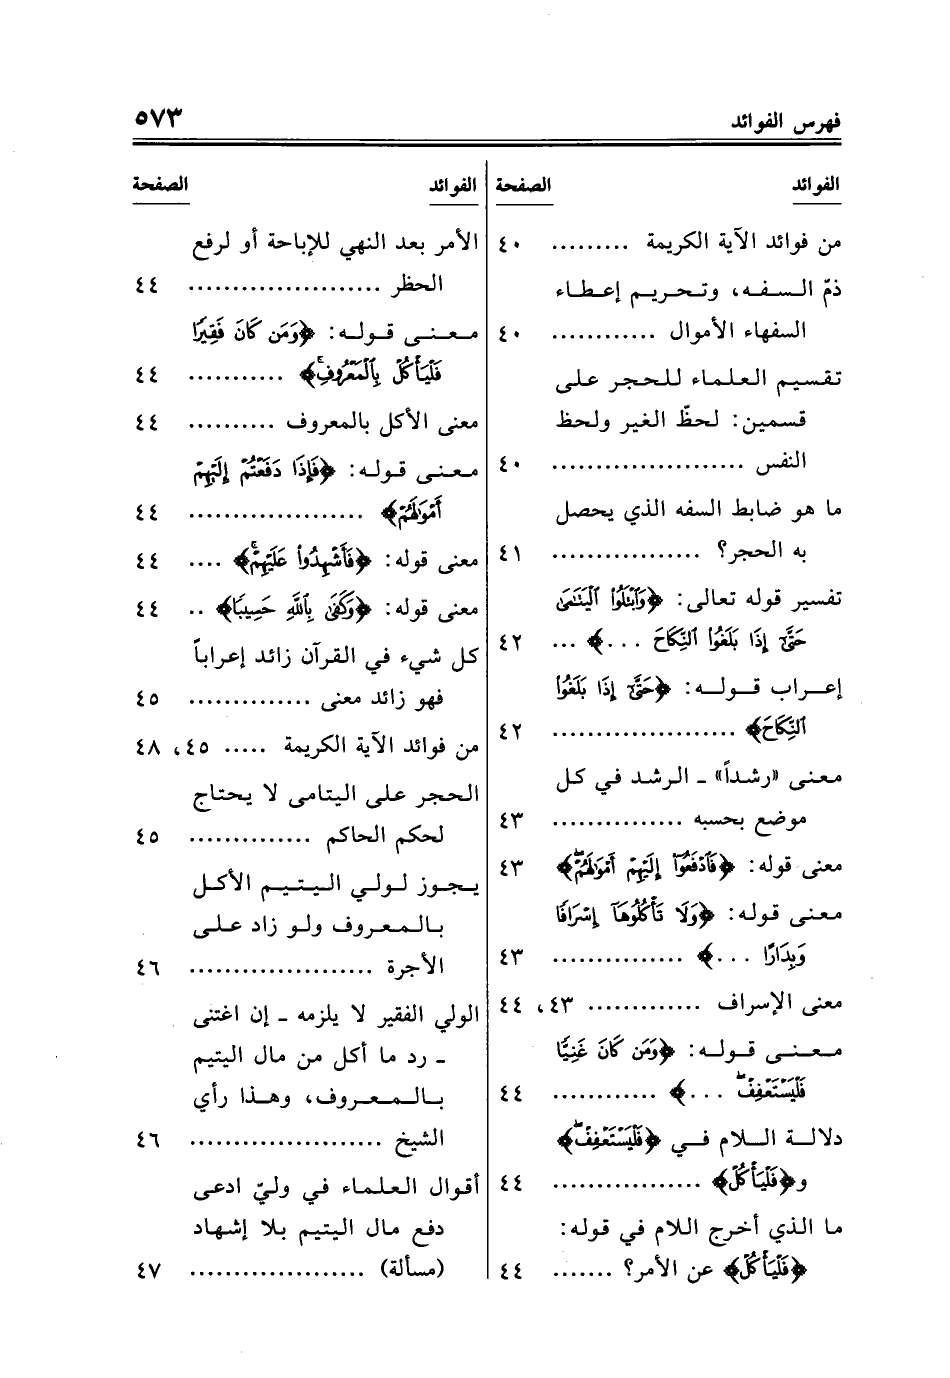 فهرس الفوائد ٥٧٣
الفوائد الصفحة
من فوائد الآية الكريمة ......... ٤٠
ذمّ السفه، وتحريم إعطاء
السفهاء الأموال ............ ٤٠
تقسيم العلماء للحجر على
قسمين: لحظّ الغير ولحظ
النفس ...................... ٤٠
ما هو ضابط السفه الذي يحصل
به الحجر؟ ................. ٤١
تفسير قوله تعالى: ﴿وَٱبْتَلُوا۟ ٱلْيَتَـٰمَىٰ
حَتَّىٰٓ إِذَا بَلَغُوا۟ ٱلنِّكَاحَ ...﴾ ... ٤٢
إعراب قوله: ﴿حَتَّىٰٓ إِذَا بَلَغُوا۟
ٱلنِّكَاحَ﴾ ..................... ٤٢
معنى «رشداً» ـ الرشد في كل
موضع بحسبه ............... ٤٣
معنى قوله: ﴿فَٱدْفَعُوٓا۟ إِلَيْهِمْ أَمْوَٰلَهُمْ ۖ﴾ ٤٣
معنى قوله: ﴿وَلَا تَأْكُلُوهَآ إِسْرَافًا
وَبِدَارًا ...﴾ ............... ٤٣
معنى الإسراف ............. ٤٣، ٤٤
معنى قوله: ﴿وَمَن كَانَ غَنِيًّا
فَلْيَسْتَعْفِفْ ۖ ...﴾ ............ ٤٤
دلالة اللام في ﴿فَلْيَسْتَعْفِفْ ۖ﴾
و﴿فَلْيَأْكُلْ﴾ ................. ٤٤
ما الذي أخرج اللام في قوله:
﴿فَلْيَأْكُلْ﴾ عن الأمر؟ ....... ٤٤
الفوائد الصفحة
الأمر بعد النهي للإباحة أو لرفع
الحظر ...................... ٤٤
معنى قوله: ﴿وَمَن كَانَ فَقِيرًا
فَلْيَأْكُلْ بِٱلْمَعْرُوفِ ۚ﴾ ........... ٤٤
معنى الأكل بالمعروف .......... ٤٤
معنى قوله: ﴿فَإِذَا دَفَعْتُمْ إِلَيْهِمْ
أَمْوَٰلَهُمْ﴾ .................... ٤٤
معنى قوله: ﴿فَأَشْهِدُوا۟ عَلَيْهِمْ ۚ﴾ .... ٤٤
معنى قوله: ﴿وَكَفَىٰ بِٱللَّهِ حَسِيبًا﴾ .. ٤٤
كل شيء في القرآن زائد إعراباً
فهو زائد معنى .............. ٤٥
من فوائد الآية الكريمة ..... ٤٥، ٤٨
الحجر على اليتامى لا يحتاج
لحكم الحاكم .............. ٤٥
يجوز لولي اليتيم الأكل
بالمعروف ولو زاد على
الأجرة ..................... ٤٦
الولي الفقير لا يلزمه ـ إن اغتنى
ـ رد ما أكل من مال اليتيم
بالمعروف، وهذا رأي
الشيخ ...................... ٤٦
أقوال العلماء في وليّ ادعى
دفع مال اليتيم بلا إشهاد
(مسألة) .................... ٤٧